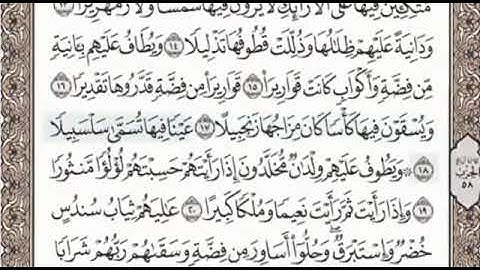 مُّتَّكِـِٔينَ فِيهَا عَلَى ٱلْأَرَآئِكِ لَا يَرَوْنَ فِيهَا شَمْسًا وَلَا زَمْهَرِيرًا ١٣
وَدَانِيَةً عَلَيْهِمْ ظِلَٰلُهَا وَذُلِّلَتْ قُطُوفُهَا تَذْلِيلًا ١٤ وَيُطَافُ عَلَيْهِم بِـَٔانِيَةٍ
مِّن فِضَّةٍ وَأَكْوَابٍ كَانَتْ قَوَارِيرَا۠ ١٥ قَوَارِيرَا۟ مِن فِضَّةٍ قَدَّرُوهَا تَقْدِيرًا ١٦
وَيُسْقَوْنَ فِيهَا كَأْسًا كَانَ مِزَاجُهَا زَنجَبِيلًا ١٧ عَيْنًا فِيهَا تُسَمَّىٰ سَلْسَبِيلًا
١٨ ۞ وَيَطُوفُ عَلَيْهِمْ وِلْدَٰنٌ مُّخَلَّدُونَ إِذَا رَأَيْتَهُمْ حَسِبْتَهُمْ لُؤْلُؤًا مَّنثُورًا
١٩ وَإِذَا رَأَيْتَ ثَمَّ رَأَيْتَ نَعِيمًا وَمُلْكًا كَبِيرًا ٢٠ عَٰلِيَهُمْ ثِيَابُ سُندُسٍ
خُضْرٌ وَإِسْتَبْرَقٌ ۖ وَحُلُّوٓا۟ أَسَاوِرَ مِن فِضَّةٍ وَسَقَىٰهُمْ رَبُّهُمْ شَرَابًا
الحزب
٥٨